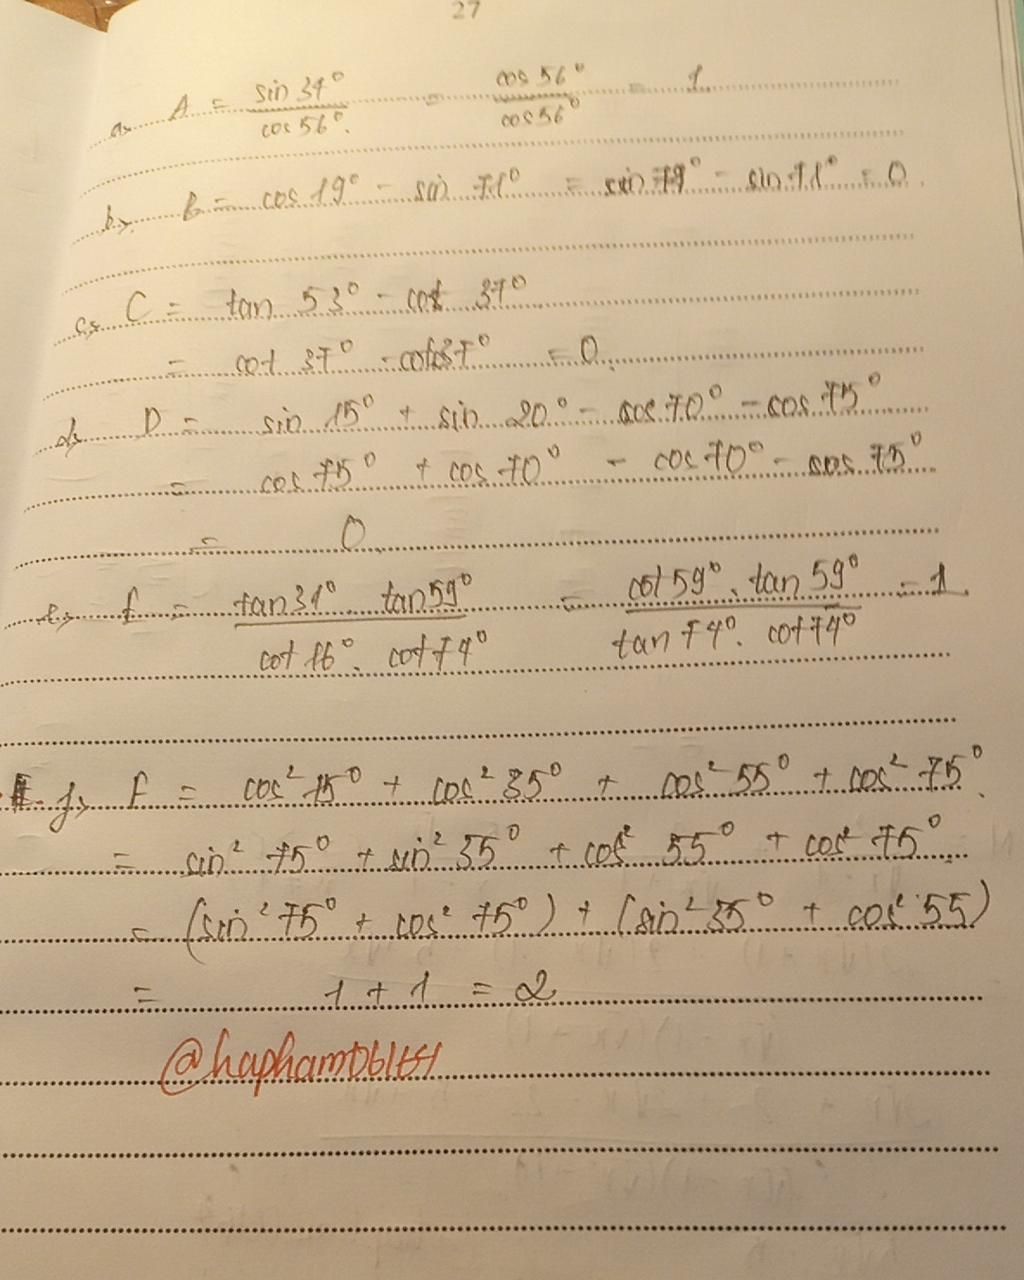 27
a, A = sin 34° / cos 56° = cos 56° / cos 56° = 1
b, B = cos 19° - sin 71° = sin 79° - sin 71° = 0
c, C = tan 53° - cot 37°
= cot 37° - cot 37° = 0
d, D = sin 15° + sin 20° - cos 70° - cos 75°
= cos 75° + cos 70° - cos 70° - cos 75°
= 0
e, E = tan 31° . tan 59° / cot 16° . cot 74° = cot 59° . tan 59° / tan 74° . cot 74° = 1
f, F = cos² 15° + cos² 35° + cos² 55° + cos² 75°
= sin² 75° + sin² 35° + cos² 55° + cos² 75°
= (sin² 75° + cos² 75°) + (sin² 35° + cos² 55)
= 1 + 1 = 2